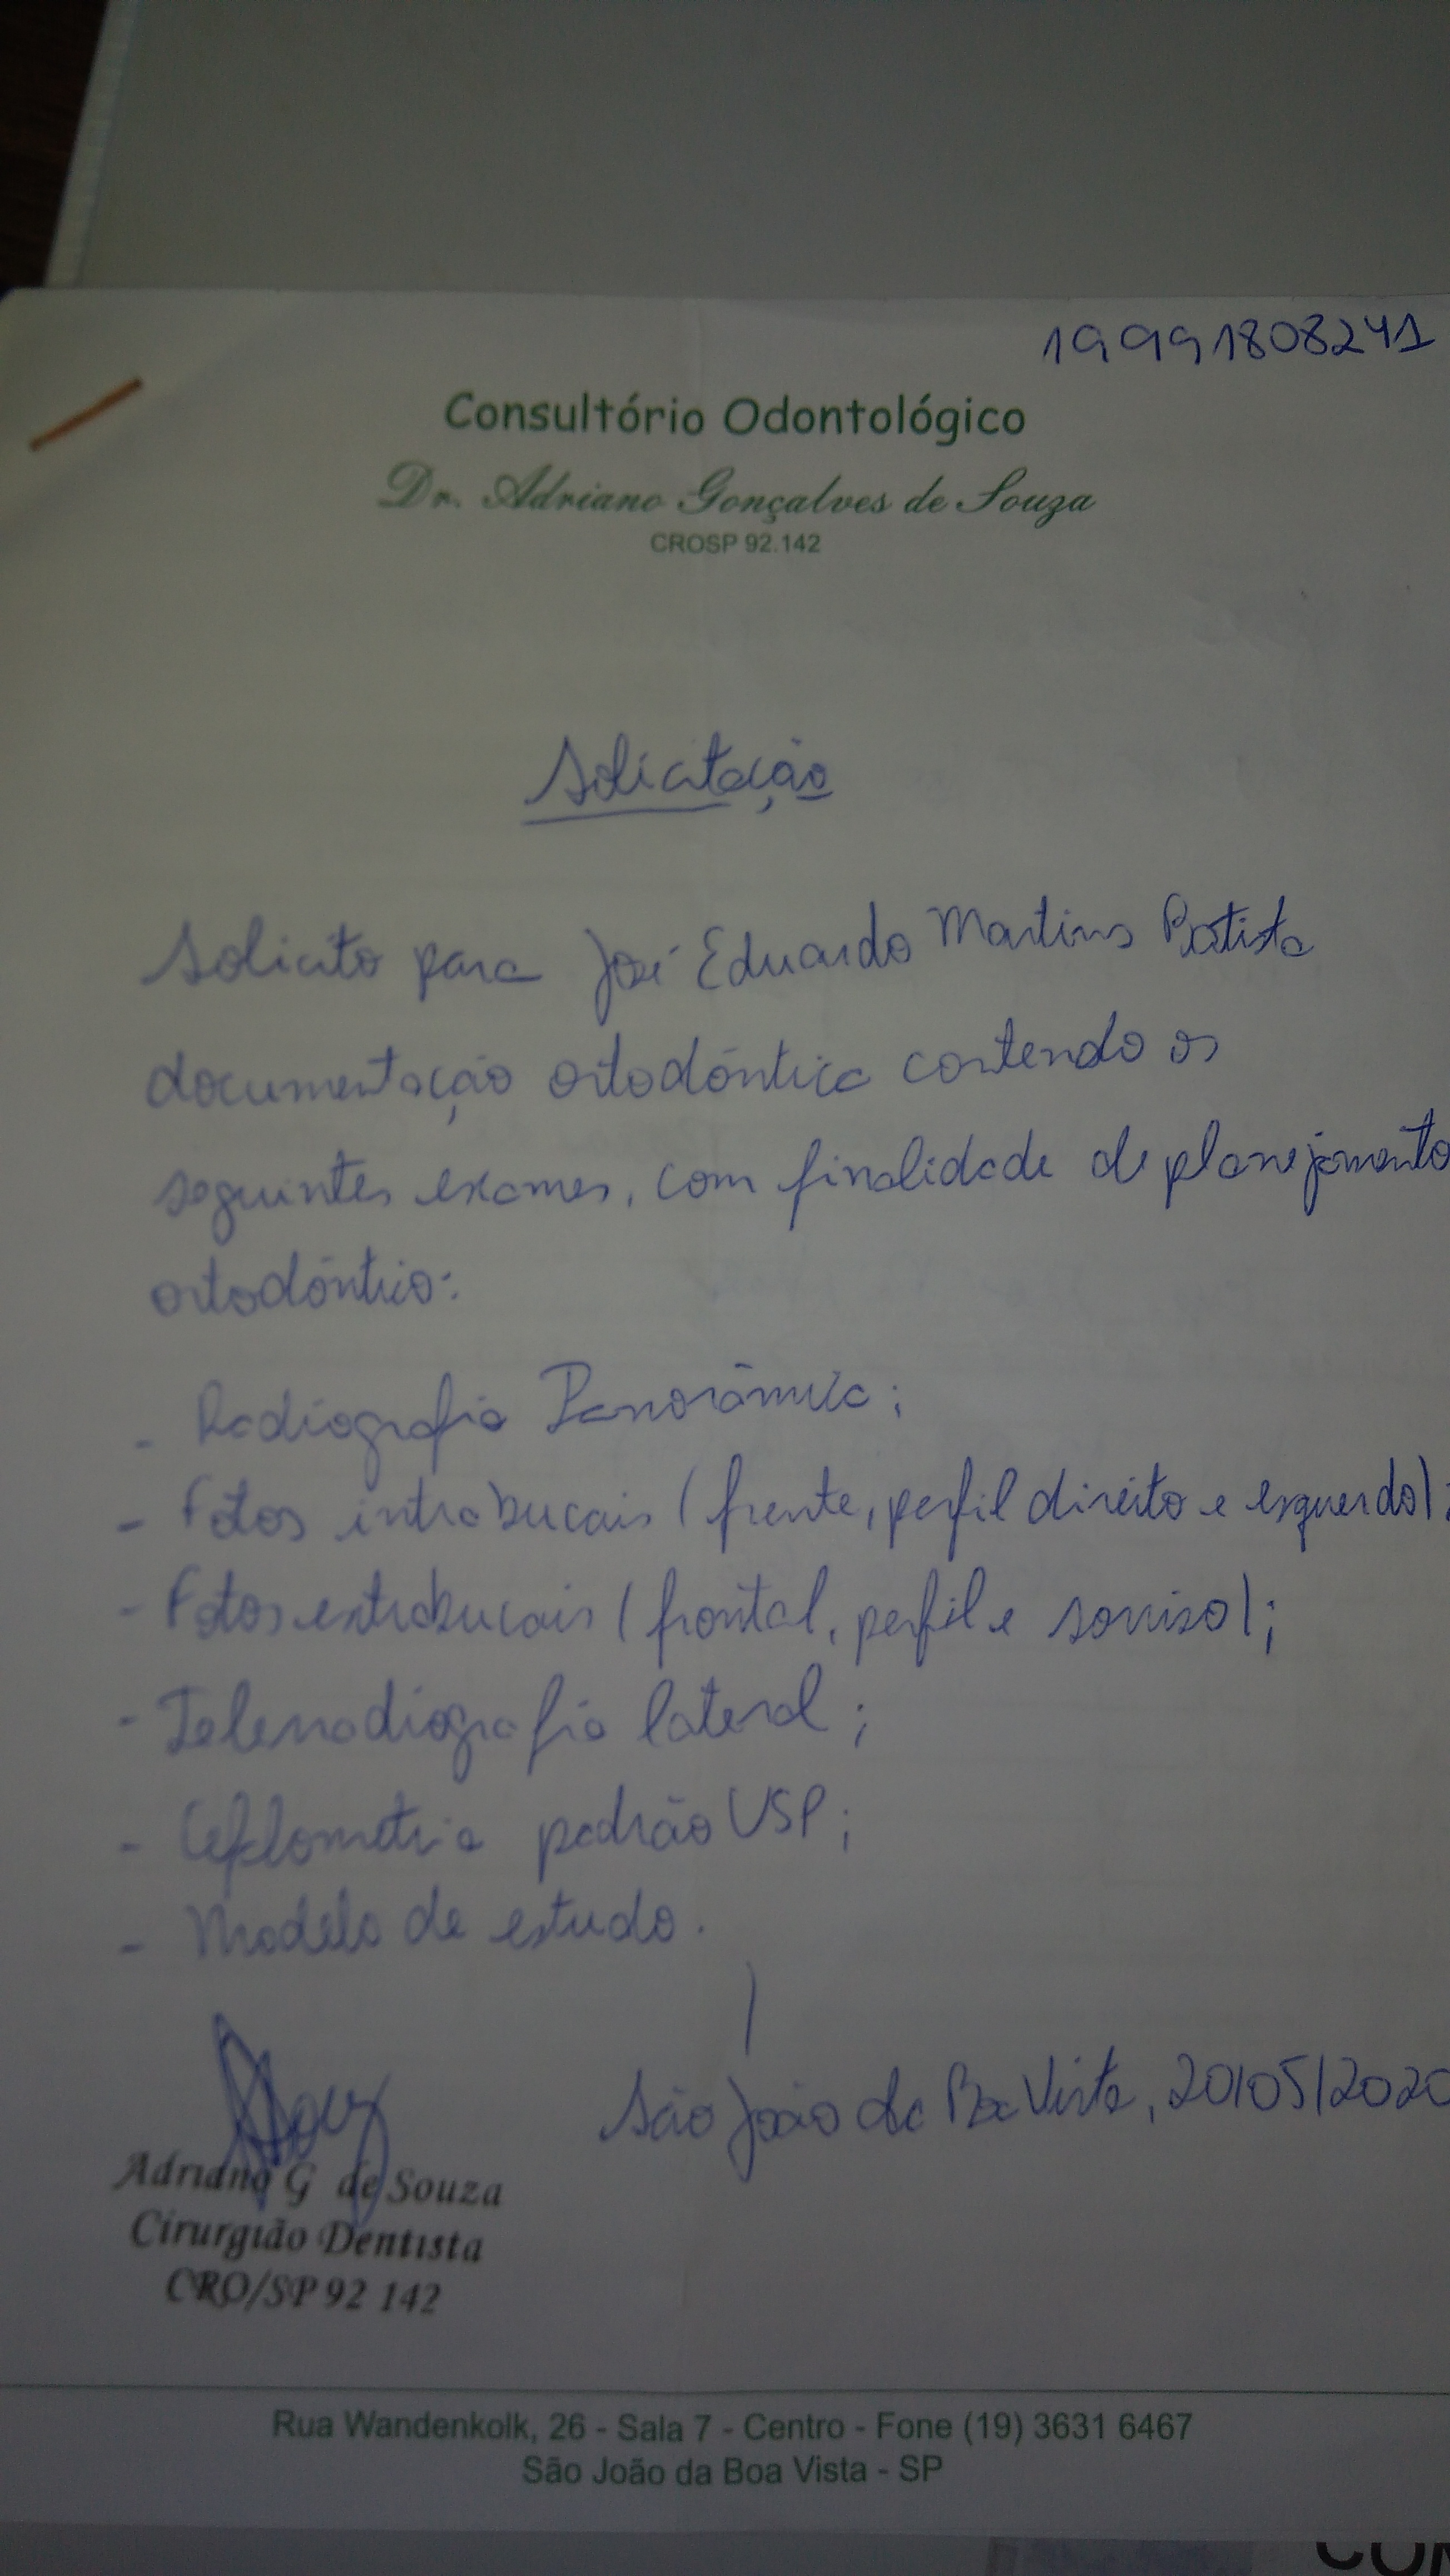 19991808241
Consultório Odontológico
Dr. Adriano Gonçalves de Souza
CROSP 92.142
Solicitação
Solicito para José Eduardo Martins Batista
documentação ortodôntica contendo os
seguintes exames, com finalidade de planejamento
ortodôntico:
- Radiografia Panorâmica;
- Fotos intrabucais (frente, perfil direito e esquerdo);
- Fotos extrabucais (frontal, perfil e sorriso);
- Telerradiografia lateral;
- Cefalometria padrão USP;
- Modelo de estudo.
São João da Boa Vista, 20/05/2020
Adriano G de Souza
Cirurgião Dentista
CRO/SP 92 142
Rua Wandenkolk, 26 - Sala 7 - Centro - Fone (19) 3631 6467
São João da Boa Vista - SP